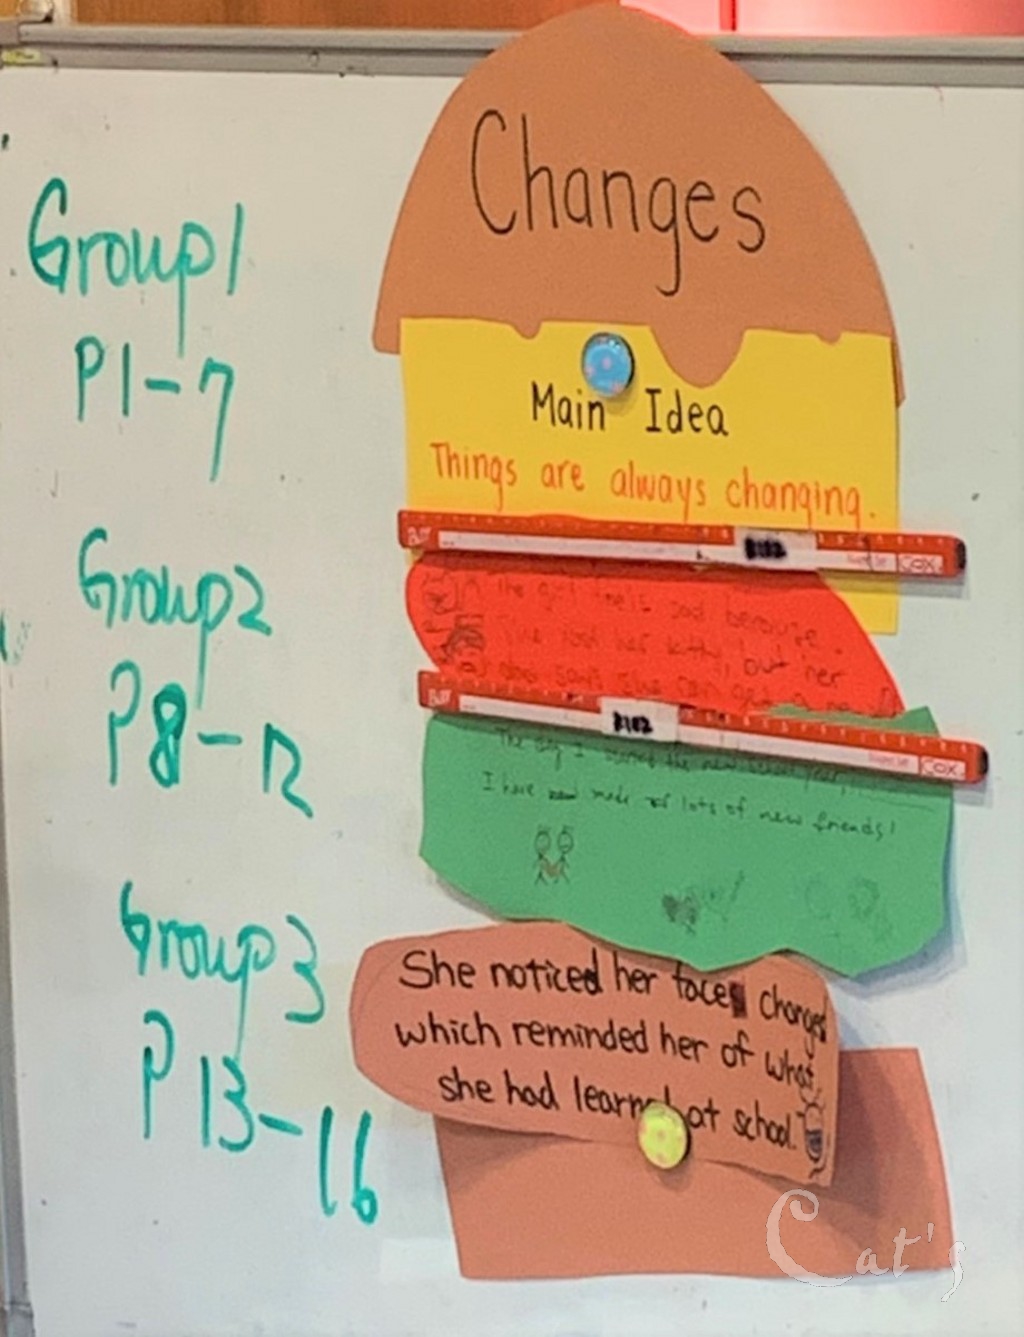 Changes
Group1
P1-7
Main Idea
Things are always changing.
COX
Group2
P8-12
the girl feels sad because
She lost her kitty, but her
dog said she can get a new
COX
The day I started the new school year,
I have made lots of new friends!
Group3
P13-16
She noticed her faces changed
which reminded her of what
she had learned at school.
Cat's